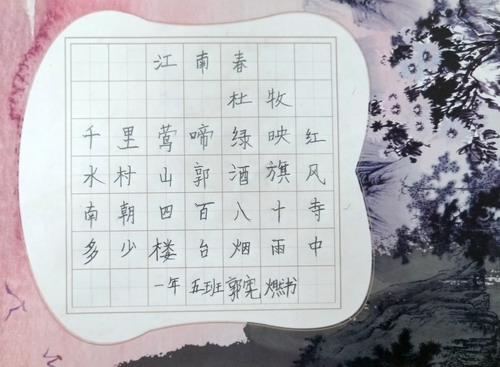 江南春
杜牧
千里莺啼绿映红
水村山郭酒旗风
南朝四百八十寺
多少楼台烟雨中
一年五班郭宪燃书